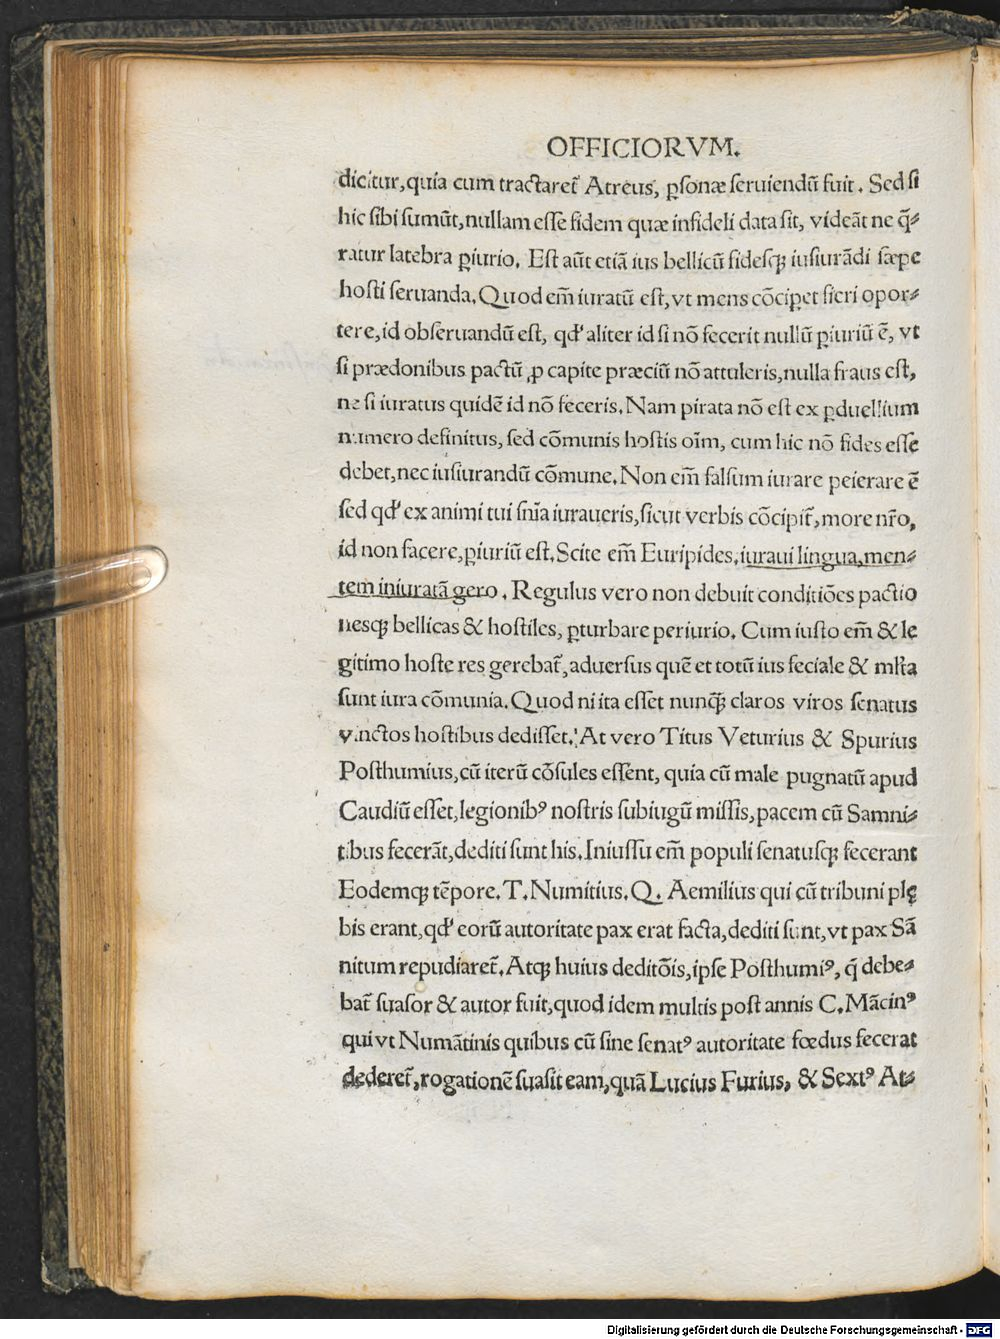 OFFICIORVM.
dicitur, quia cum tractaret᷑ Atreus, ꝑsonæ ſeruiendũ fuit. Sed ſi
hic ſibi ſumũt, nullam eſſe fidem quæ infideli data ſit, videãt ne q̃⸗
ratur latebra ꝑiurio. Eſt aũt etiã ius bellicũ fidesqꝫ iuſiurãdi ſæpe
hoſti ſeruanda. Quod em̃ iuratũ eſt, vt mens cõciꝑet fieri opor⸗
tere, id obſeruandũ eſt, qd' aliter id ſi nõ fecerit nullũ ꝑiuriũ ẽ, vt
ſi prædonibus pactũ ꝓ capite præciũ nõ attuleris, nulla fraus eſt,
ne ſi iuratus quidẽ id nõ feceris. Nam pirata nõ eſt ex ꝑduellium
numero definitus, ſed cõmunis hoſtis oĩm, cum hic nõ fides eſſe
debet, nec iuſiurandũ cõmune. Non em̃ falſum iurare peierare ẽ
ſed qd' ex animi tui ſñia iuraueris, ſicut verbis cõcipit᷑, more nr̃o,
id non facere, ꝑiuriũ eſt. Scite em̃ Euripides. iuraui lingua, men⸗
tem iniuratã gero. Regulus vero non debuit conditiões pactio
nesqꝫ bellicas & hoſtiles, ꝑturbare periurio. Cum iuſto em̃ & le
gitimo hoſte res gerebat᷑, aduerſus quẽ et totũ ius feciale & ml̃ta
ſunt iura cõmunia. Quod ni ita eſſet nunqꝫ̃ claros viros ſenatus
vinctos hoſtibus dediſſet. At vero Titus Veturius & Spurius
Poſthumius, cũ iterũ cõſules eſſent, quia cũ male pugnatũ apud
Caudiũ eſſet, legionibꝰ noſtris ſubiugũ miſſis, pacem cũ Samni⸗
tibus fecerãt, dediti ſunt his. Iniuſſu em̃ populi ſenatusqꝫ fecerant
Eodemqꝫ tẽpore. T. Numitius. Q. Aemilius qui cũ tribuni plę
bis erant, qd' eorũ autoritate pax erat facta, dediti ſunt, vt pax Sã
nitum repudiaret᷑. Atqꝫ huius deditõis, ipſe Poſthumiꝰ, q̃ debe⸗
bat᷑ ſuaſor & autor fuit, quod idem multis poſt annis C. Mãcinꝰ
qui vt Numãtinis quibus cũ ſine ſenatꝰ autoritate fœdus fecerat
dederet᷑, rogationẽ ſuaſit eam, quã Lucius Furius, & Sextꝰ At⸗
Digitalisierung gefördert durch die Deutsche Forschungsgemeinschaft - DFG